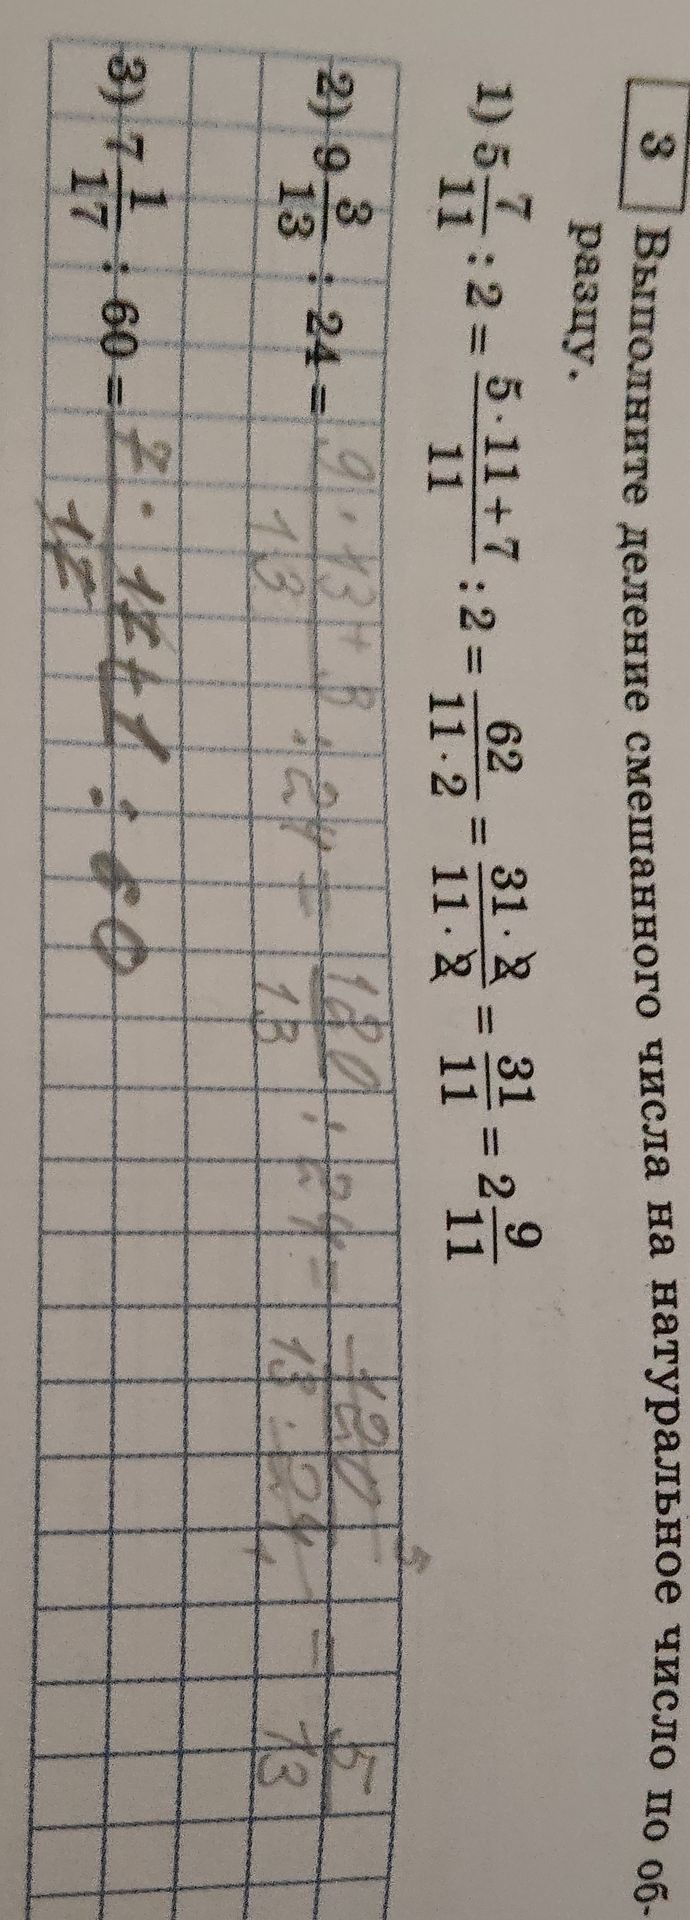 3 Выполните деление смешанного числа на натуральное число по об-
разцу.
1) 5 7/11 : 2 = (5 · 11 + 7)/11 : 2 = 62/(11 · 2) = (31 · 2)/(11 · 2) = 31/11 = 2 9/11
2) 9 3/13 : 24 = (9 · 13 + 3)/13 : 24 = 120/13 : 24 = 120 5/(13 · 24) = 5/13
3) 7 1/17 : 60 = (7 · 17 + 1)/17 : 60